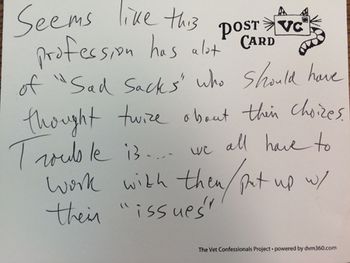 Seems like this
POST VC
CARD
profession has alot
of "Sad Sacks" who should have
thought twice about their choices.
Trouble is.... we all have to
work with them/put up w/
their "issues"
The Vet Confessionals Project • powered by dvm360.com